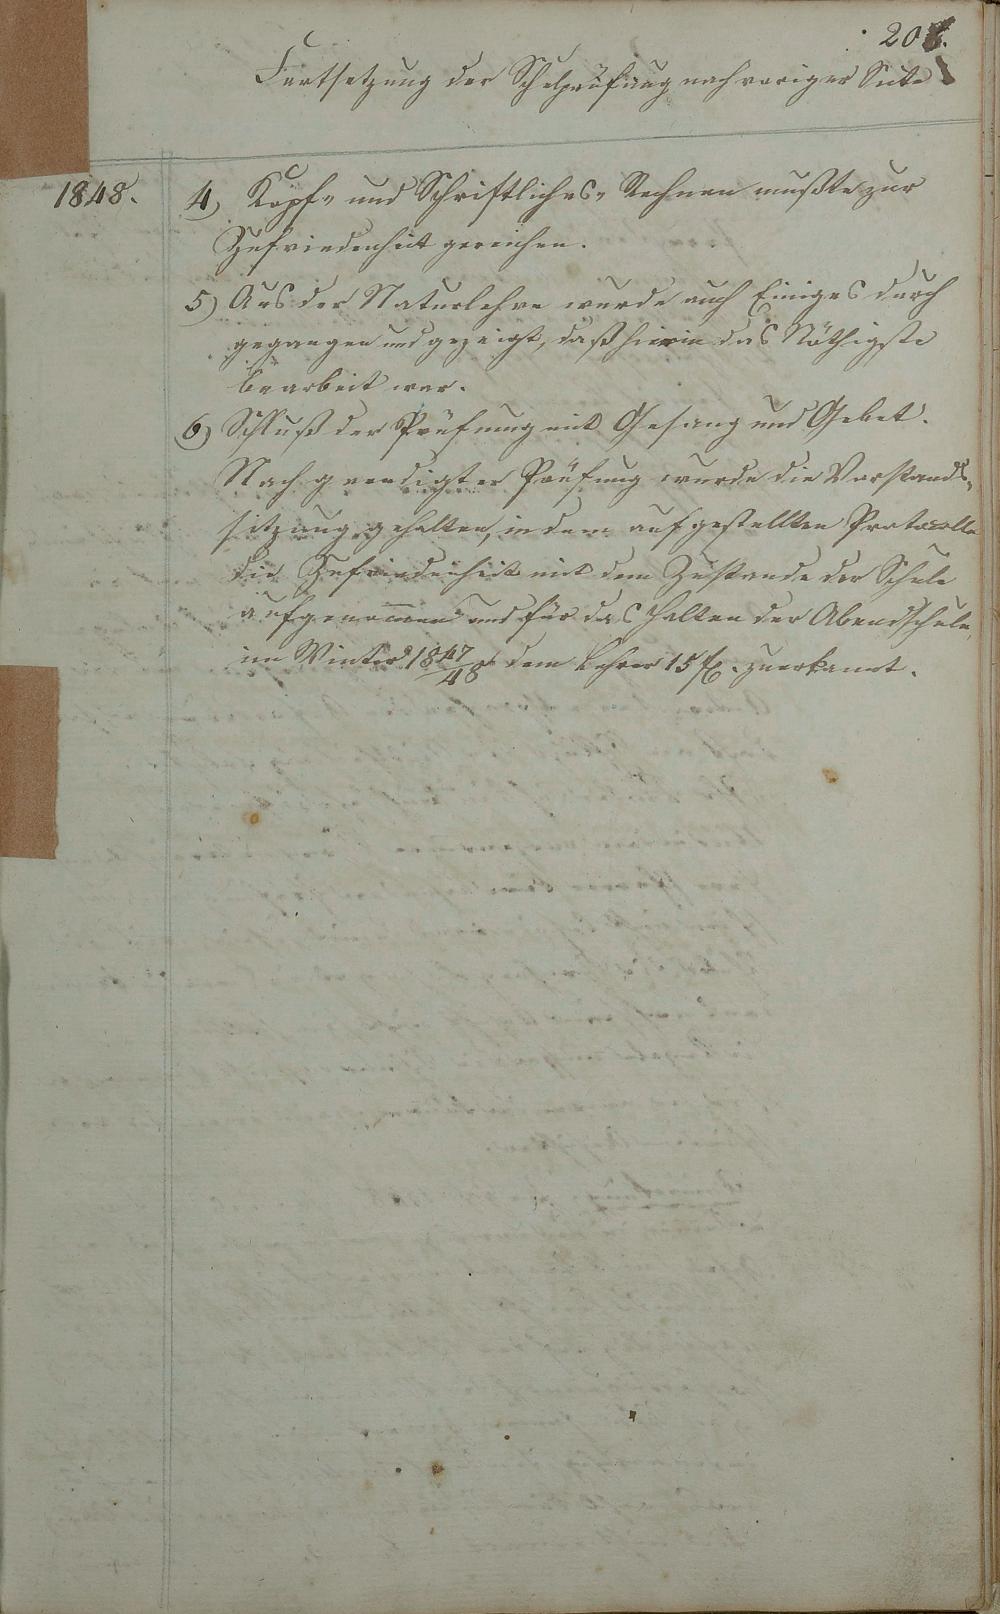 Fortsetzung der Schulprüfung nach voriger Seite
1848.
4, Kopf- und Schriftliches- Rechnen mußte zur
Zufriedenheit gereichen.
5) Aus der Naturlehre wurde auch Einiges durch
gegangen und gezeigt, daß hierin das Nöthigste
bearbeit war.
6) Schluß der Prüfung mit Gesang und Gebet.
Nach geendigter Prüfung wurde die Vorstands-
sitzung gehalten, in dem aufgestellten Protocolle
die Zufriedenheit mit dem Zustande der Schule
aufgenommen und für das Halten der Abendschule,
im Winter 1847/48 dem Lehrer 15 f. zuerkannt.